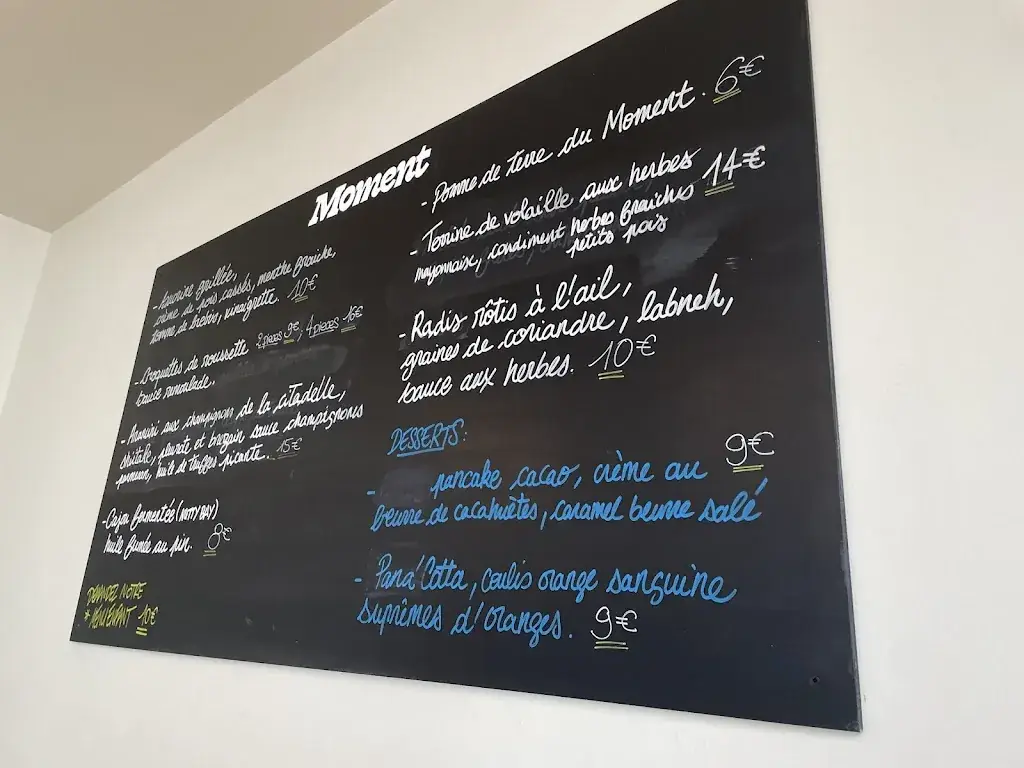 Moment
- Amorine grillée,
crème de pois cassés, menthe fraîche,
tomme de brebis, vinaigrette. 10€
- Croquettes de roussette 2 pieces 9€, 4 pieces 16€
sauce ravigolade.
aux champignons de la citadelle,
shiitake, pleurote et sauce champignons
parmesan, huile de truffes picante. 15€
- Cajou fermentée (NUTTY BAY)
huile fumée au pin. 8€
DEMANDEZ NOTRE
* 10€
- Pomme de terre du Moment. 6€
- Terrine de volaille aux herbes 14€
mayonnaise, condiment herbes fraîches
petits pois
- Radis rôtis à l'ail,
graines de coriandre, labneh,
sauce aux herbes. 10€
DESSERTS:
- pancake cacao, crème au 9€
beurre de cacahuètes, caramel beurre salé
- Pana'Cotta, coulis orange sanguine
suprêmes d'oranges. 9€